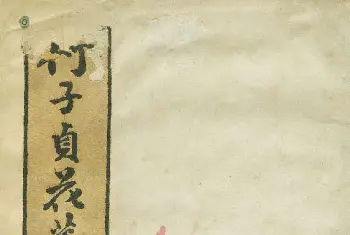 竹子貞花